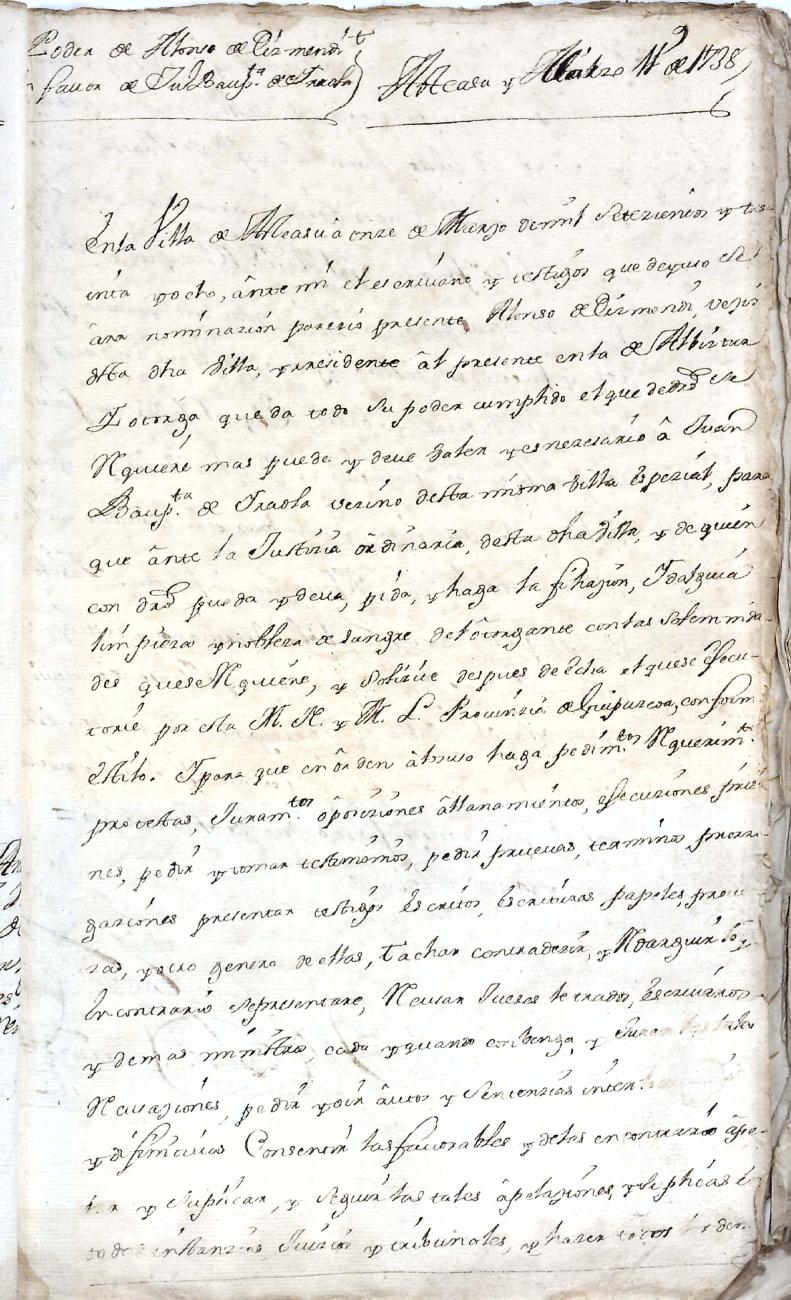 Poder de Alonso de Eizmendi
favor de Juº Baupta. de Traola
Alteasu y Marzo 11 de 1738
En la Villa de Alteasu â onze de Marzo de mil setezientos y tre
inta y ocho, ânte mi el escrivano y testigos que deyuso se
âra nominazion parezio presente Alonso de Eizmendi, vezino
desta dha Villa, y rresidente âl presente en la de Albiztur
Y otorga que da todo su poder cumplido el que de dro se
Requiere mas puede y deve baler y es nezesario â Juan
Baupta. de Traola vezino desta misma Villa espezial, para
que ânte la Justizia ôrdinaria, desta dha Villa, y de quien
con dro pueda y deva, pida, y haga la filiazion, Idalguia
limpieza y nobleza de sangre del ôtorgante con las solemnida-
des que se Requiere, y solizite despues de êcha el que se êsecu-
torie por esta M. N. y M. L. Provinzia de Guipuzcoa, conforme
êstilo. Y para que en ôrden âlsuso haga pedimtos Requerimtos
protestas, Juramtos ôposiziones âllanamientos, êsecuziones prisio
nes, pedir y tomar testimonios, pedir pruevas, terminos prorro-
gaziones presentar testigos êscritos, êscrituras papeles, prove
zas, y otro genero de ellas, tachar contradezir, y Redarguir lo q
en contrario sepresentare, Recusar Juezes letrados, êscrivanos
y demas ministros, cada y quando conbenga, y Jurar las tales
Recusaziones, pedir y oir âutos y sentenzias inter
y difinitivas Consentir las favorables y delas en contrario âpe-
lar y suplicar, y seguir las tales âpelaziones, y suplicas en
todas instanzias Juizios y tribunales, y hazer todos los demas